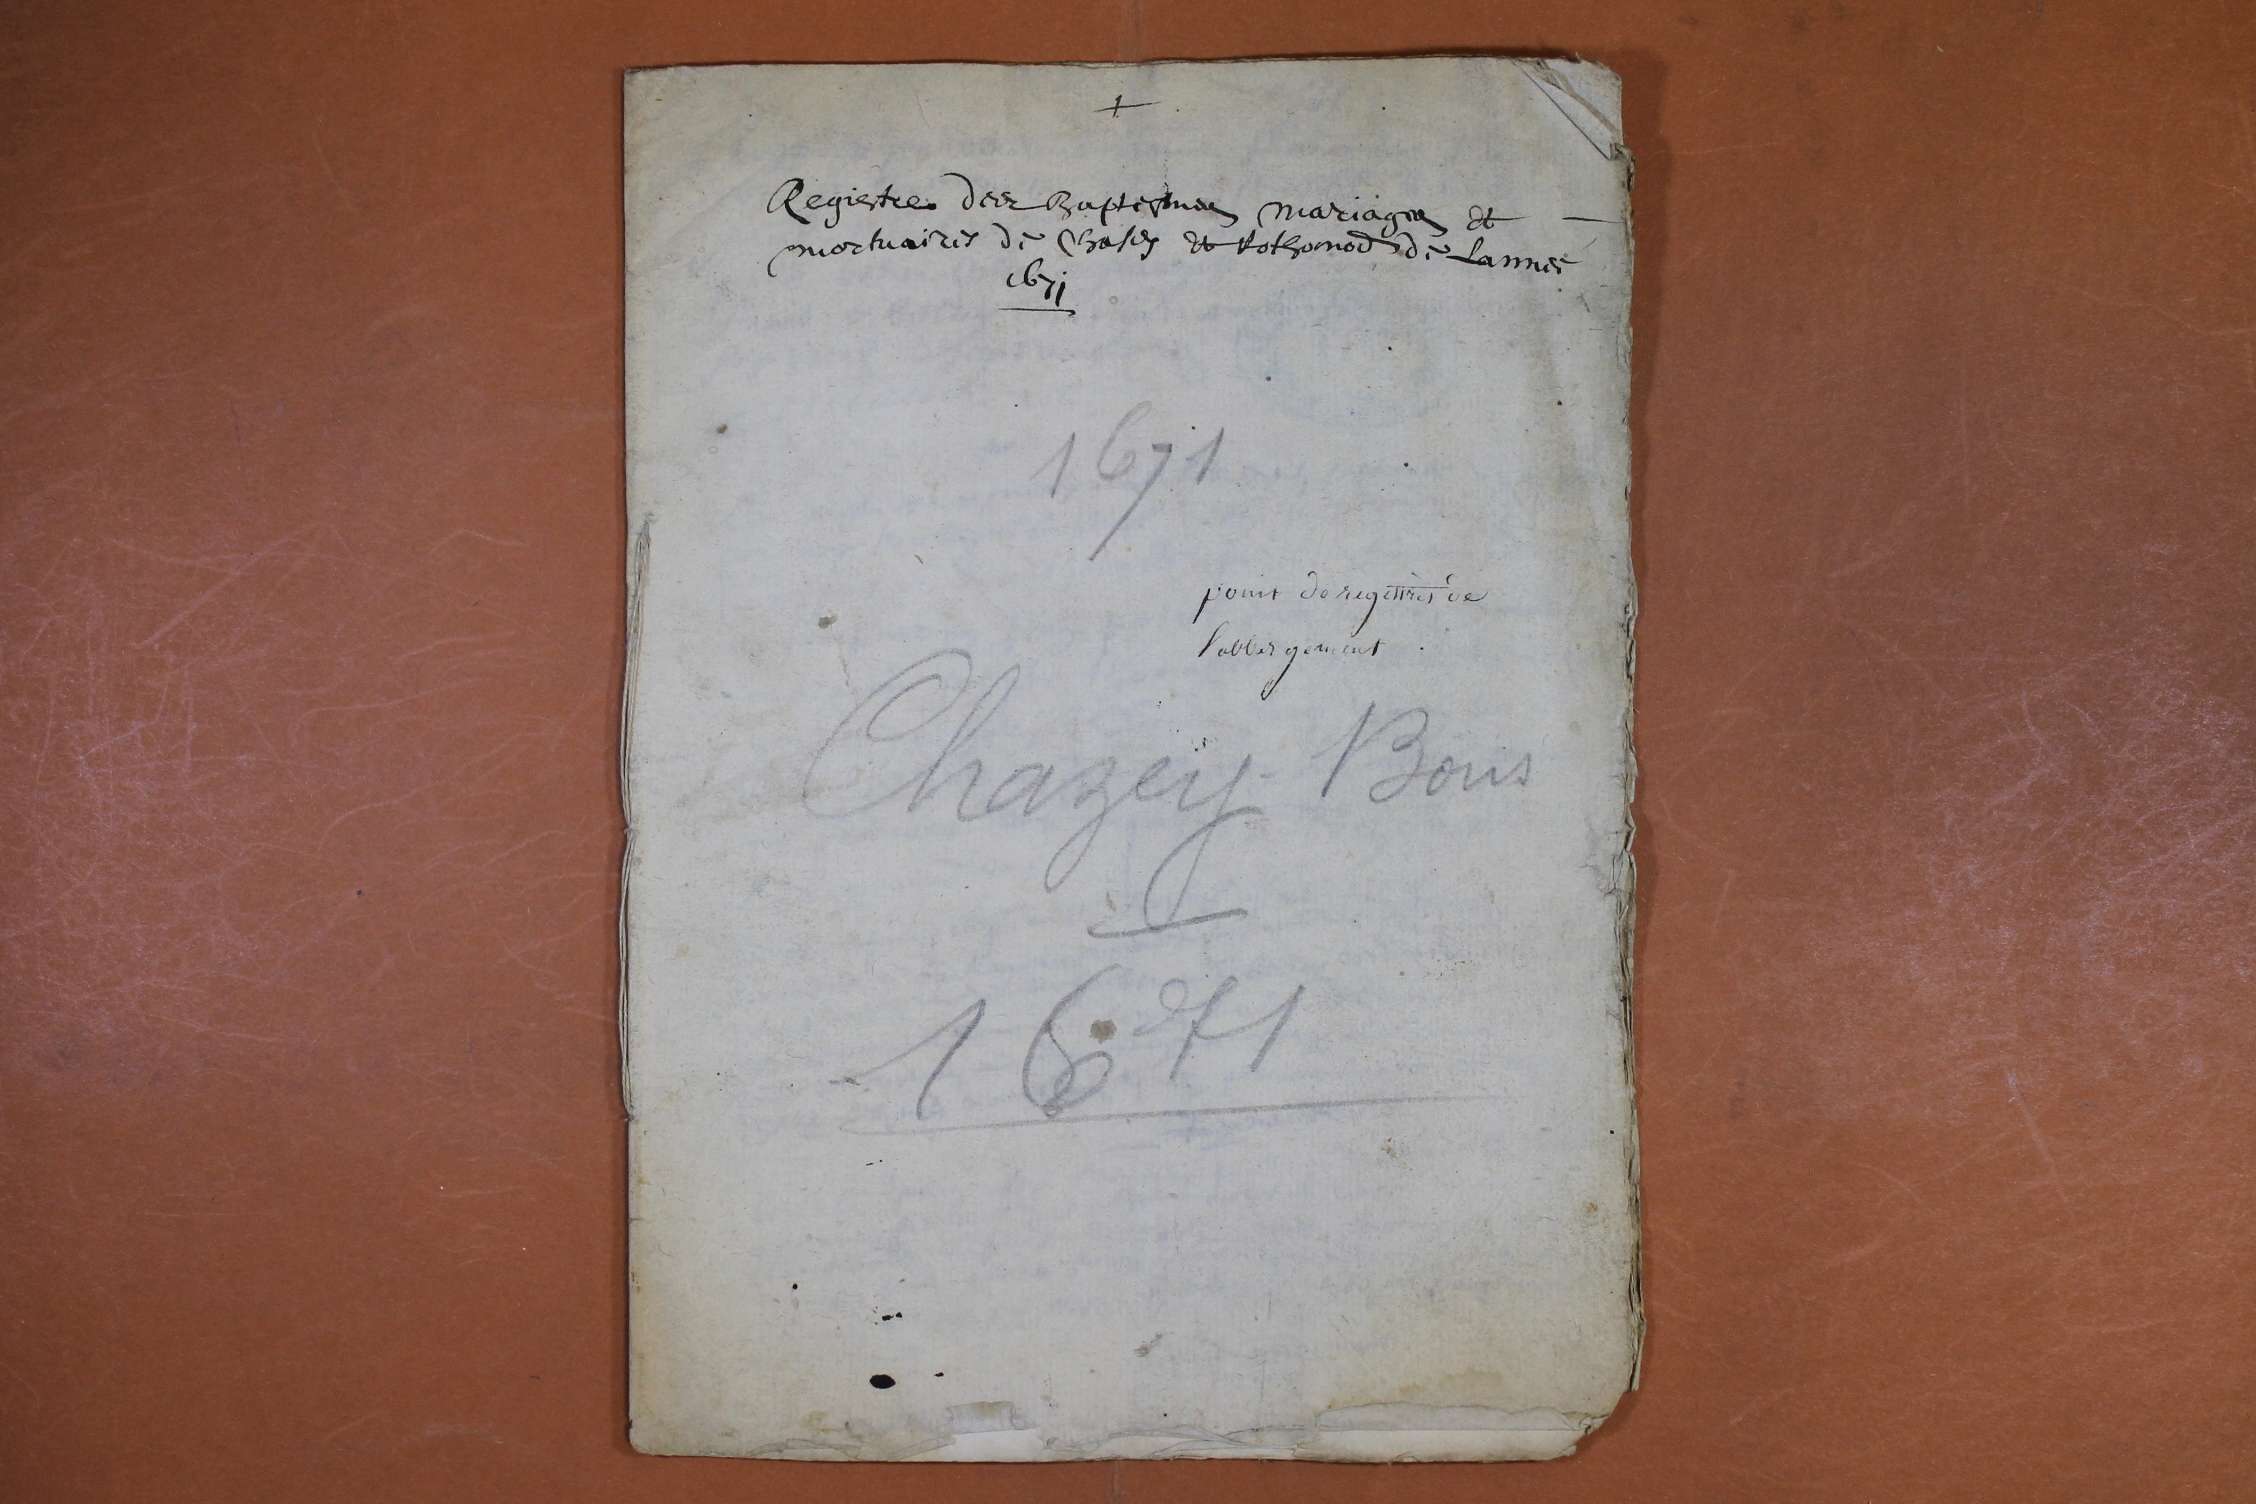 +
Registre des Baptesmes mariages et
mortuaires de Chasey et Rothonod de Lannee
1671
1671
point de regettres de
l'abbergement
Chazey Bons
1671